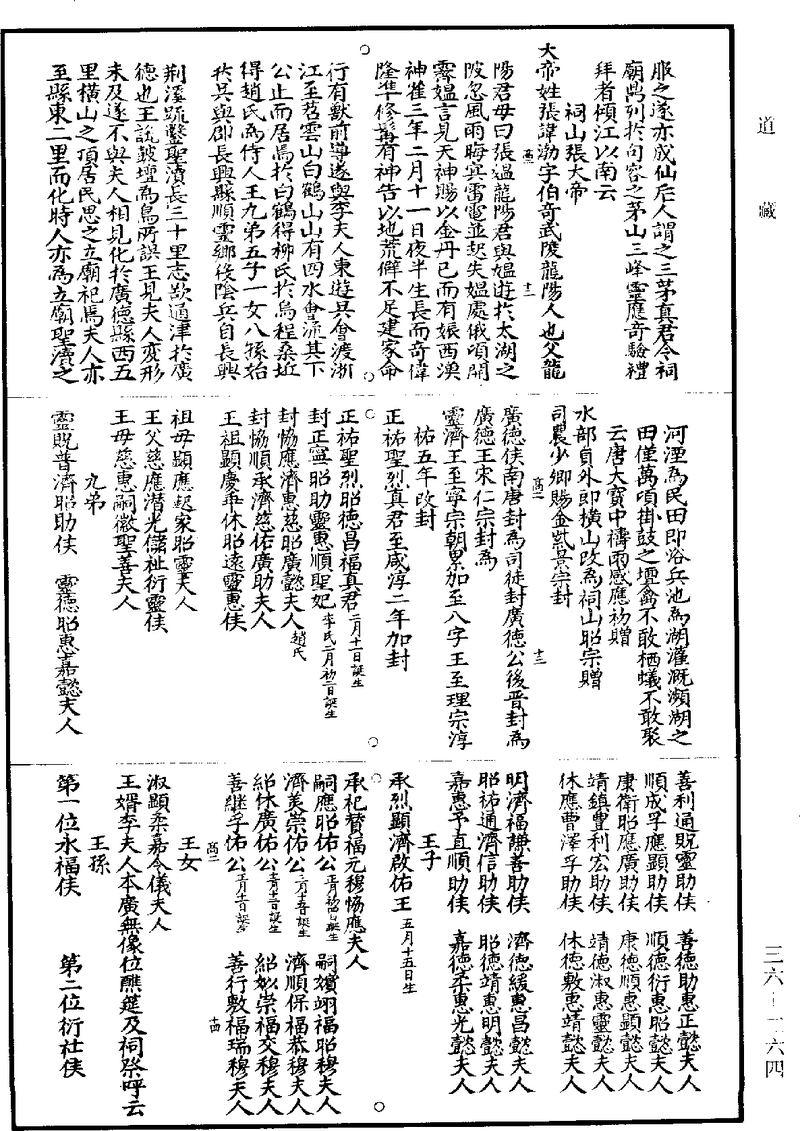 道藏
服之遂亦成仙后人謂之三茅真君今祠
廟尚列於句容之茅山三峰靈應奇驗禮
拜者傾江以南云
祠山張大帝
大帝姓張諱渤字伯奇武陵龍陽人也父龍
陽君母曰張媼龍陽君與媼遊於太湖之
陂忽風雨晦冥雷電並起失媼處俄頃開
霽媼言見天神賜以金丹已而有娠西漢
神雀三年二月十一日夜半生長而奇偉
隆準修髯有神告以地荒僻不足建家命
行有獸前導遂與李夫人東遊吳會渡浙
江至苕雲山白鶴山山有四水會流其下
公止而居焉於白鶴得柳氏於烏程桑坵
得趙氏為侍人王九弟五子一女八孫始
於吳興郡長興縣順靈鄉役陰兵自長興
荆溪疏鑿聖瀆長三十里志欲通津於廣
德也王說皷壇為烏所誤王見夫人変形
未及遂不與夫人相見化於廣德縣西五
里橫山之頂居民思之立廟祀焉夫人亦
至縣東二里而化時人亦為立廟聖瀆之
河湮為民田即浴兵池為湖灌溉瀕湖之
田僅萬頃掛鼓之壇禽不敢栖蟻不敢聚
云唐天寶中禱雨感應初贈
水部員外郎橫山改為祠山昭宗贈
司農少卿賜金紫景宗封
廣德侯南唐封為司徒封廣德公後晋封為
廣德王宋仁宗封為
靈濟王至寧宗朝累加至八字王至理宗淳
祐五年改封
正祐聖烈真君至咸淳二年加封
正祐聖烈昭德昌福真君二月十一日誕生
封正寧昭助靈惠順聖妃李氏二月初二日誕生
封恊應濟惠慈昭廣懿夫人趙氏
封恊順承濟慈佑廣助夫人
王祖顯慶垂休昭遠靈惠侯
祖母顯應起家昭靈夫人
王父慈應潛光儲祉衍靈侯
王母慈惠嗣徽聖善夫人
九弟
靈貺普濟昭助侯　靈德昭惠嘉懿夫人
善利通貺靈助侯　善德助惠正懿夫人
順成孚應顯助侯　順德衍惠昭懿夫人
康衛昭應廣助侯　康德順惠顯懿夫人
靖鎮豐利宏助侯　靖德淑惠靈懿夫人
休應曹澤孚助侯　休德敷惠靖懿夫人
明濟福謙善助侯　濟德緩惠昌懿夫人
昭祐通濟信助侯　昭德靖惠明懿夫人
嘉惠予直順助侯　嘉德柔惠光懿夫人
王子
承烈顯濟啟佑王五月十五日生
承祀贊福元穆恊應夫人
嗣應昭佑公　嗣嬪翊福昭穆夫人
濟美崇佑公　濟順保福恭穆夫人
紹休廣佑公　紹姒崇福交穆夫人
善繼孚佑公　善行敷福瑞穆夫人
王女
淑顯柔嘉令儀夫人
王婿李夫人本廣無像位醮筵及祠祭呼云
王孫
第一位永福侯　第二位衍社侯
三六―二六四